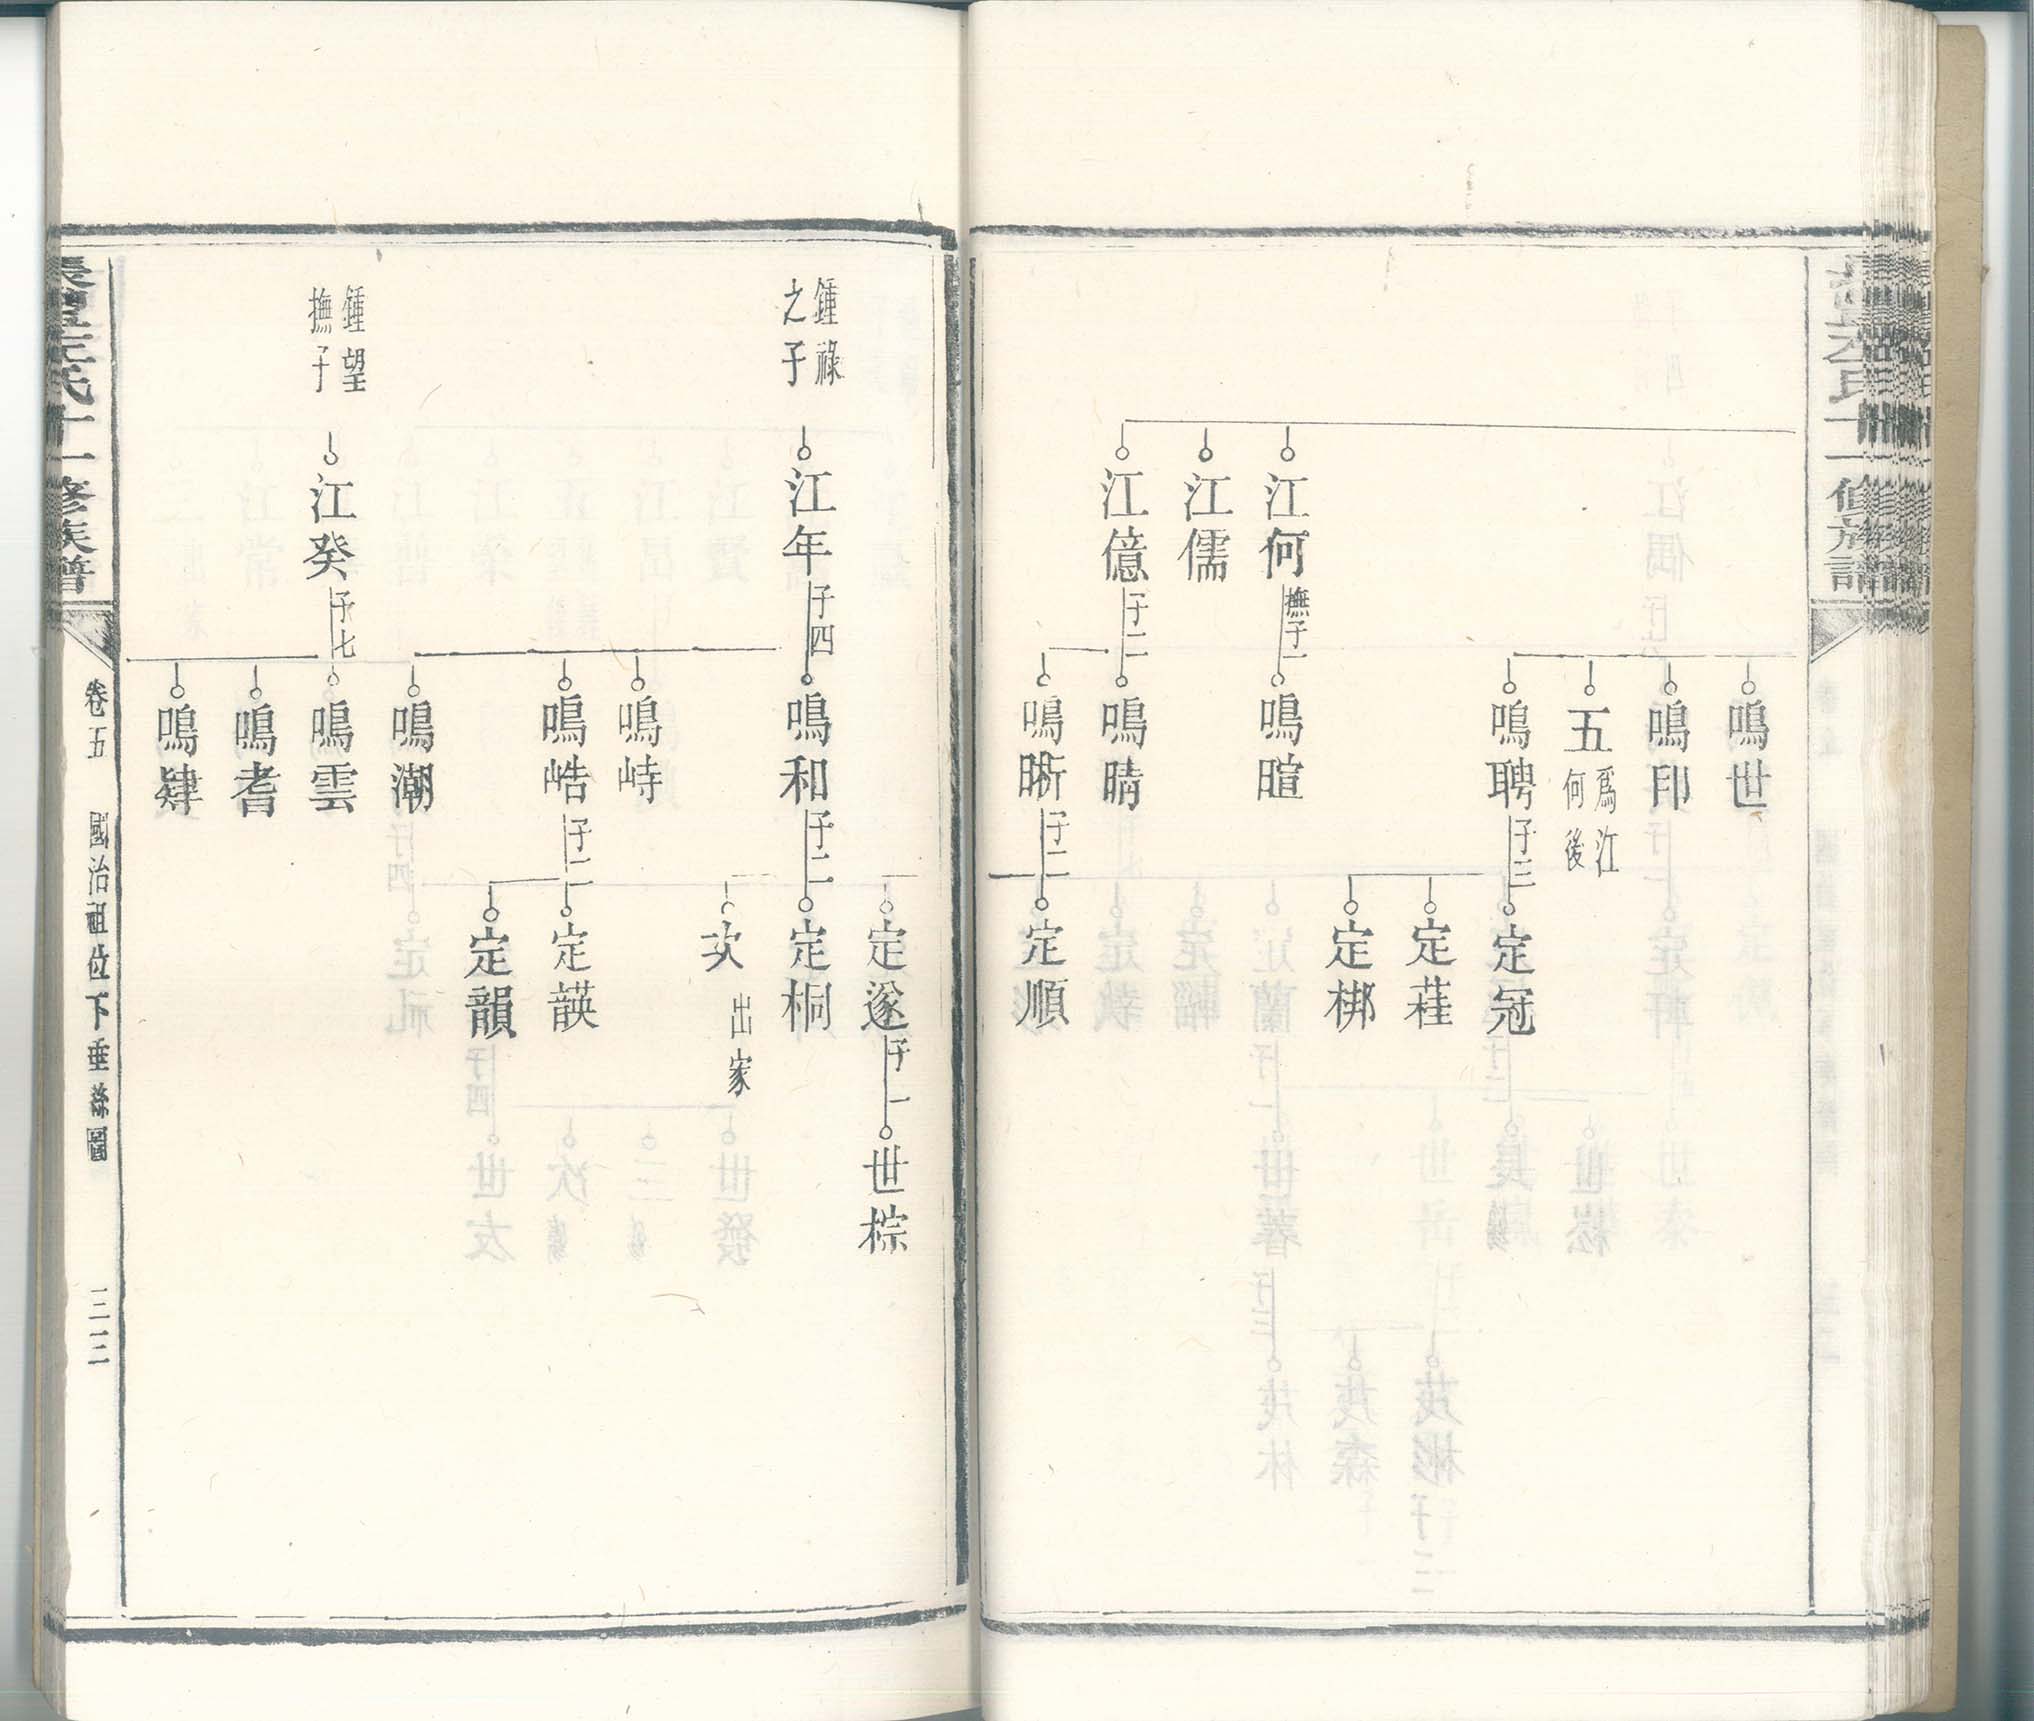 鳴世
鳴印
五
為江
何後
鳴聘
子三
定冠
定蕥
定梆
江何
撫子一
鳴暄
江儒
江億
子二
鳴晴
鳴晣
子二
定順
定遂
子一
世棕
鍾祿
之子
江年
子四
鳴和
子二
定桐
次
出家
鳴峙
鳴皓
子二
定韺
定韻
鳴潮
鍾望
撫子
江癸
子七
鳴雲
鳴耆
鳴肄
氏十一修族譜
卷五
國治祖位下垂絲圖
三二